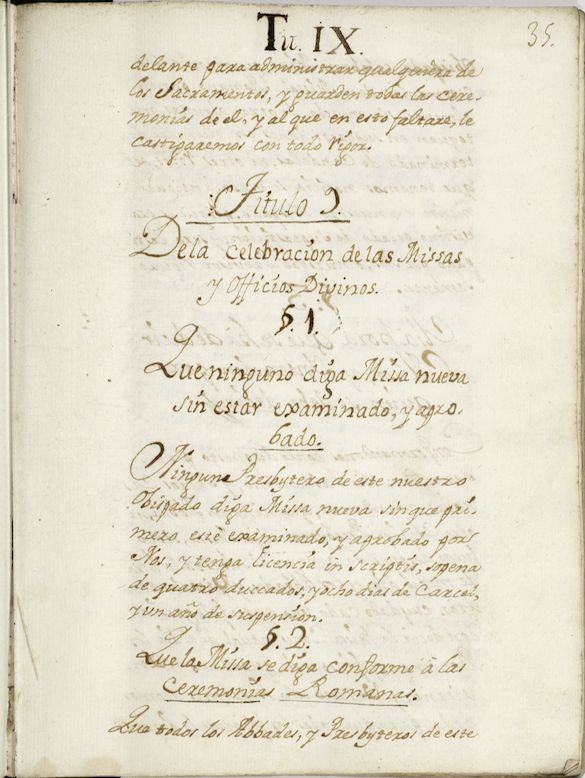 Tit. IX.
35.
delante para administrar qualquiera de
los Sacramentos, y guarden todas las cere-
monias de el, y al que en esto faltare, le
castigaremos con todo rigor.
Titulo 9.
De la Celebracion de las Missas
y Officios Divinos.
§. 1.
Que ninguno diga Missa nueva
sin estar examinado, y apro-
bado.
Ningune Presbytero de este nuestro
Obispado diga Missa nueva sin que pri-
mero estè examinado, y aprobado por
Nos, y tenga licencia in scriptis, sopena
de quatro duccados, y ocho dias de Carcel,
y un año de suspension.
§. 2.
Que la Missa se diga conforme à las
Ceremonias Romanas.
Que todos los Abbades, y Presbyteros de este